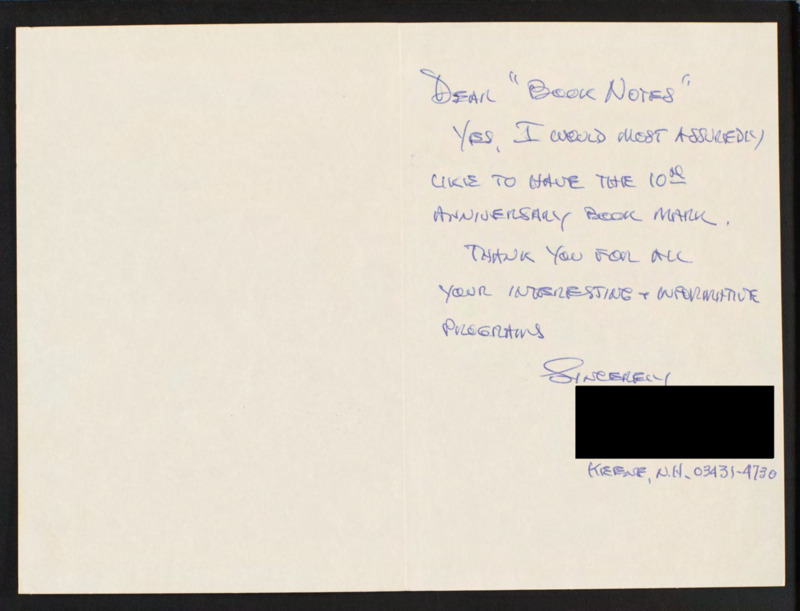 DEAR "BOOK NOTES"
YES, I WOULD MOST ASSUREDLY
LIKE TO HAVE THE 10TH
ANNIVERSARY BOOK MARK.
THANK YOU FOR ALL
YOUR INTERESTING + INFORMATIVE
PROGRAMS
SINCERELY
KEENE, N.H. 03431-4730